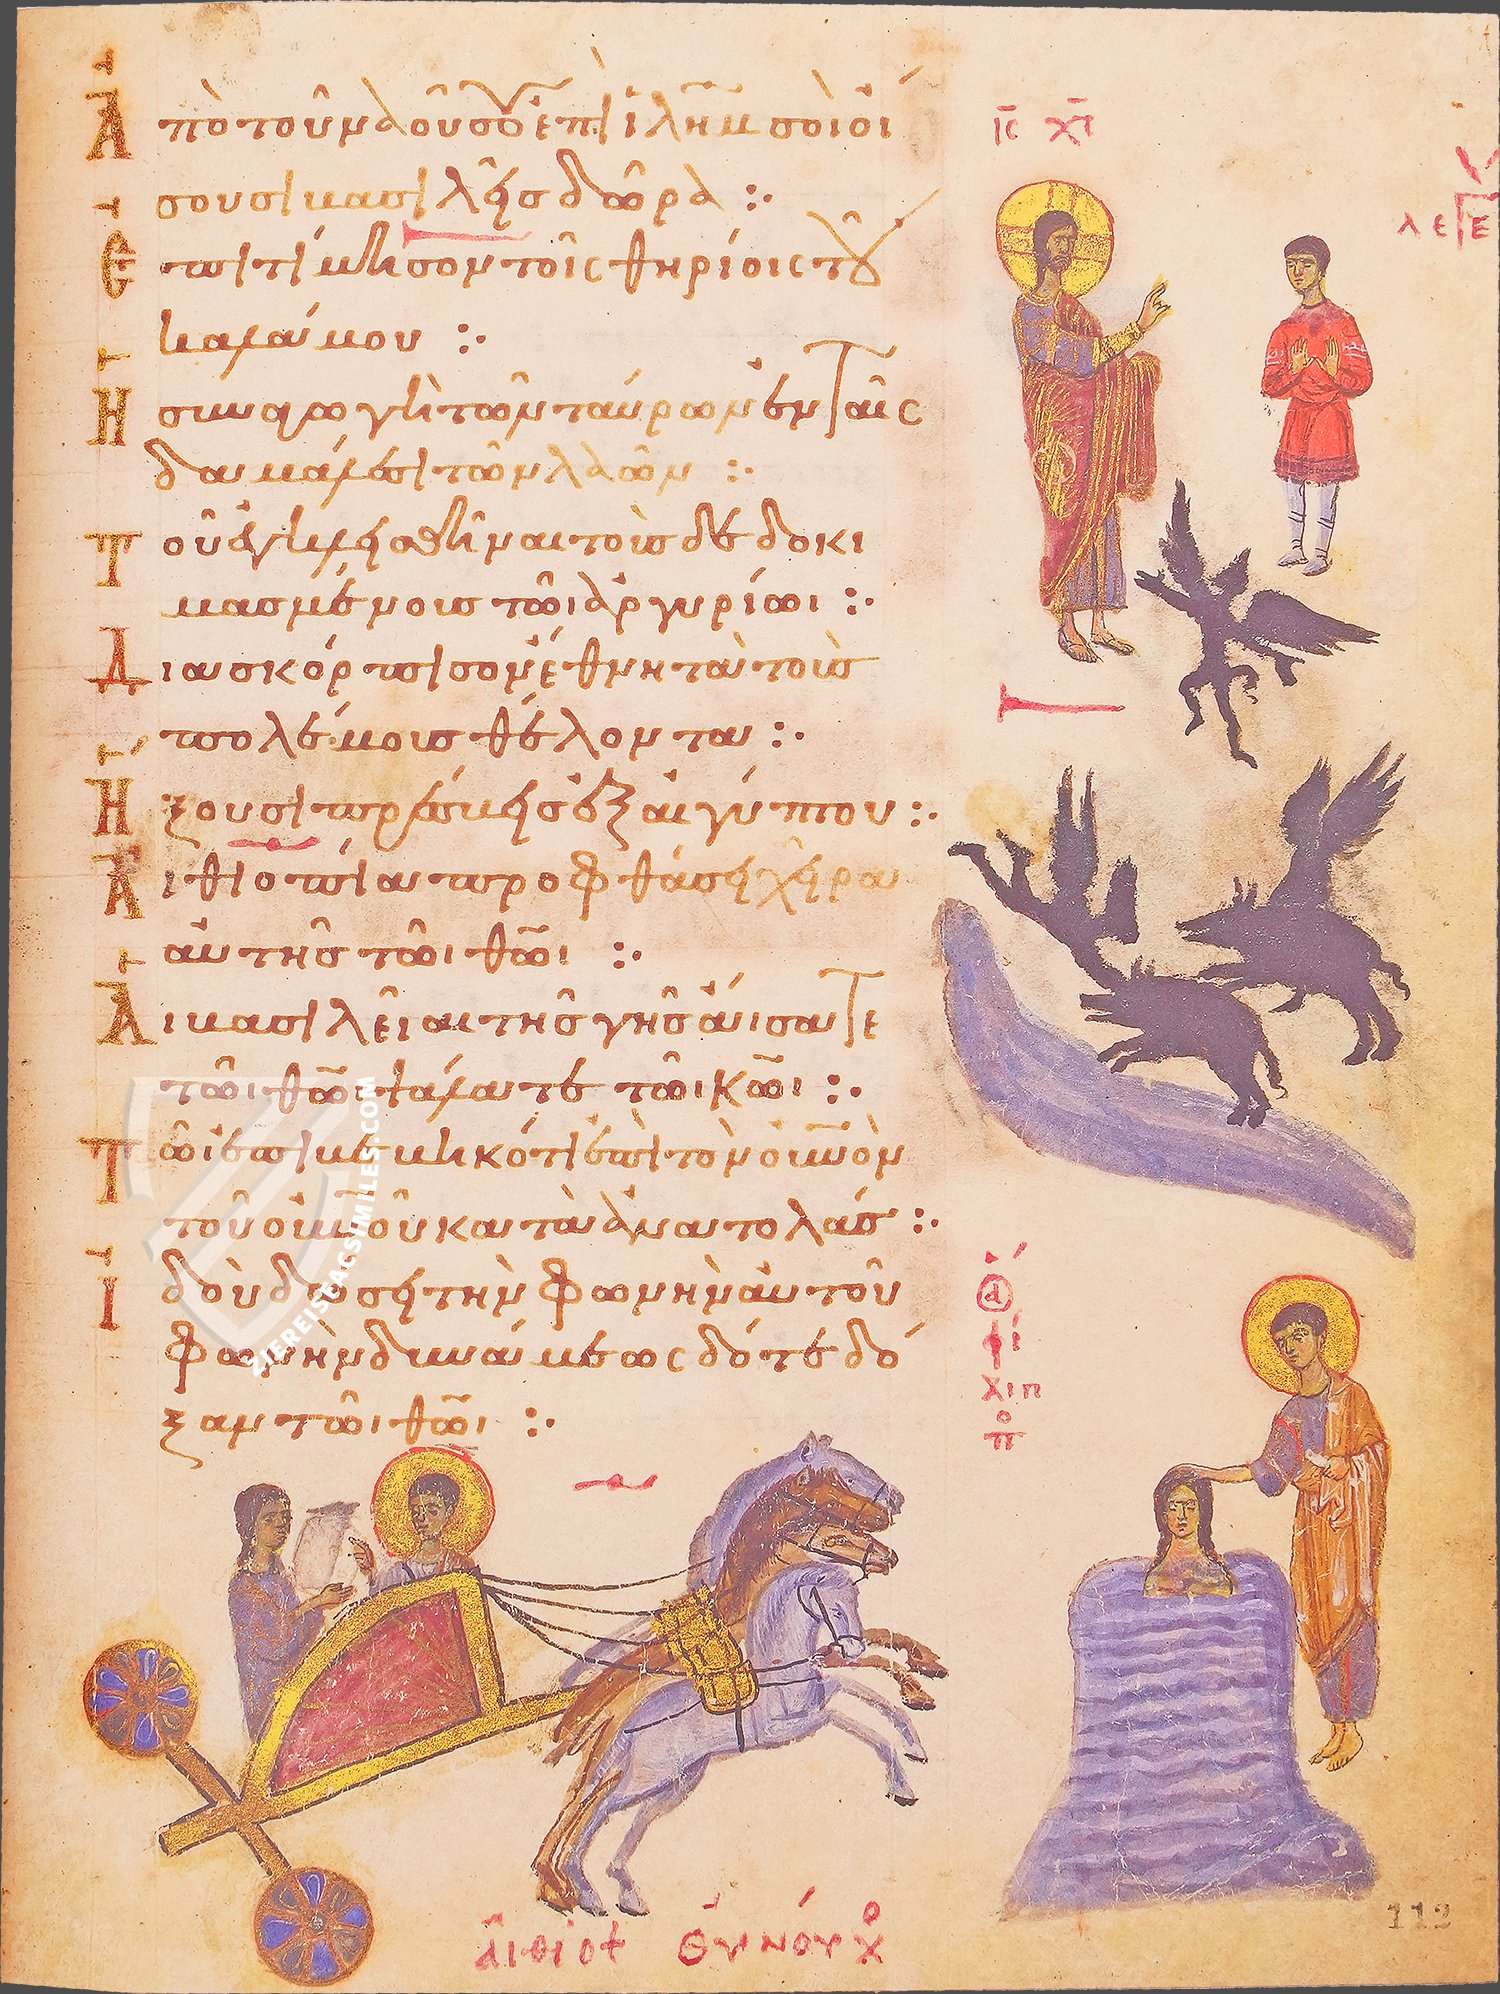 Ἀπὸ τοῦ ναοῦ σου ἐπὶ ἱλη̅μ σοὶ οἴ
σουσι βασιλεῖς δῶρα :·
Ἐπιτίμησον τοῖς θηρίοις τοῦ
καλάμου :·
Ἡ συναγωγὴ τῶν ταύρων ἐν ταῖς
δαμάλεσι τῶν λαῶν :·
Τοῦ ἐγκλεισθῆναι τοὺς δεδοκι
μασμένους τῶι ἀργυρίωι :·
Διασκόρπισον ἔθνη τὰ τοὺς
πολέμους θέλοντα :·
Ἥξουσι πρέσβεις ἐξ αἰγύπτου :·
Αἰθιοπία προφθάσει χεῖρα
αὐτῆς τῶι θ̅ω̅ι :·
Αἱ βασιλεῖαι τῆς γῆς ἄισατε
τῶι θ̅ω̅ ψάλατε τῶι κ̅ω̅ι :·
Τῶι ἐπιβεβηκότι ἐπὶ τὸν οὐ̅νὸν
τοῦ οὐ̅νοῦ κατὰ ἀνατολάς :·
Ἰδοὺ δώσει τὴν φωνὴν αὐτοῦ
φωνὴν δυνάμεως δότε δό
ξαν τῶι θ̅ω̅ι :·
ι̅ς χ̅ς
λεγε
ὁ ἅ
φί
λιπ
πο
αἰθίοψ εὐνούχο
112
ZIEREIS FACSIMILES.COM